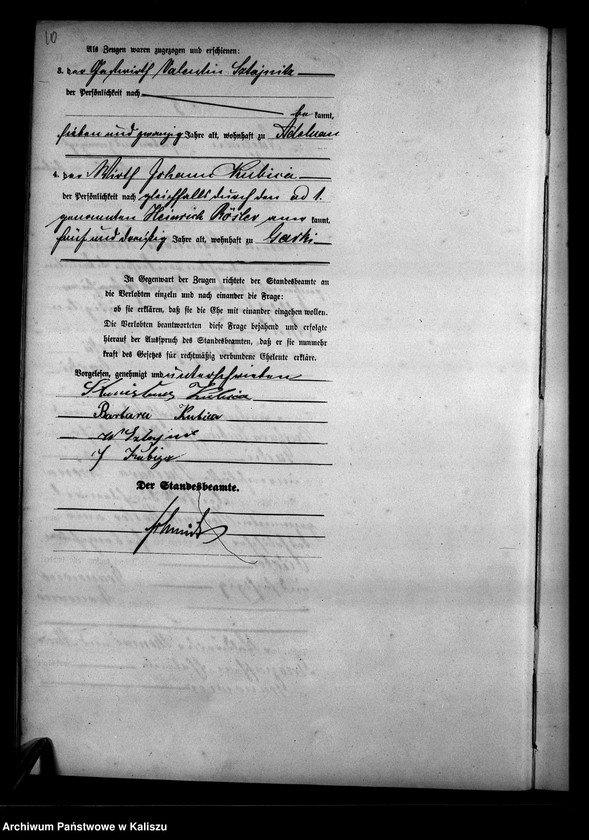 10
Als Zeugen waren zugezogen und erschienen:
3. der Gastwirth Valentin Sztajnik
der Persönlichkeit nach
be kannt,
sieben und zwanzig Jahre alt, wohnhaft zu Adelnau
4. der Wirth Johann Kubica
der Persönlichkeit nach gleichfalls durch den ad 1.
genannten Heinrich Rösler aner kannt,
fünf und dreißig Jahre alt, wohnhaft zu Garki
In Gegenwart der Zeugen richtete der Standesbeamte an
die Verlobten einzeln und nach einander die Frage:
ob sie erklären, daß sie die Ehe mit einander eingehen wollen.
Die Verlobten beantworteten diese Frage bejahend und erfolgte
hierauf der Ausspruch des Standesbeamten, daß er sie nunmehr
kraft des Gesetzes für rechtmäßig verbundene Eheleute erkläre.
Vorgelesen, genehmigt und unterschrieben
Kubica
Barbara Kubica
J Kubiza
Der Standesbeamte.
Schmidt
Archiwum Państwowe w Kaliszu